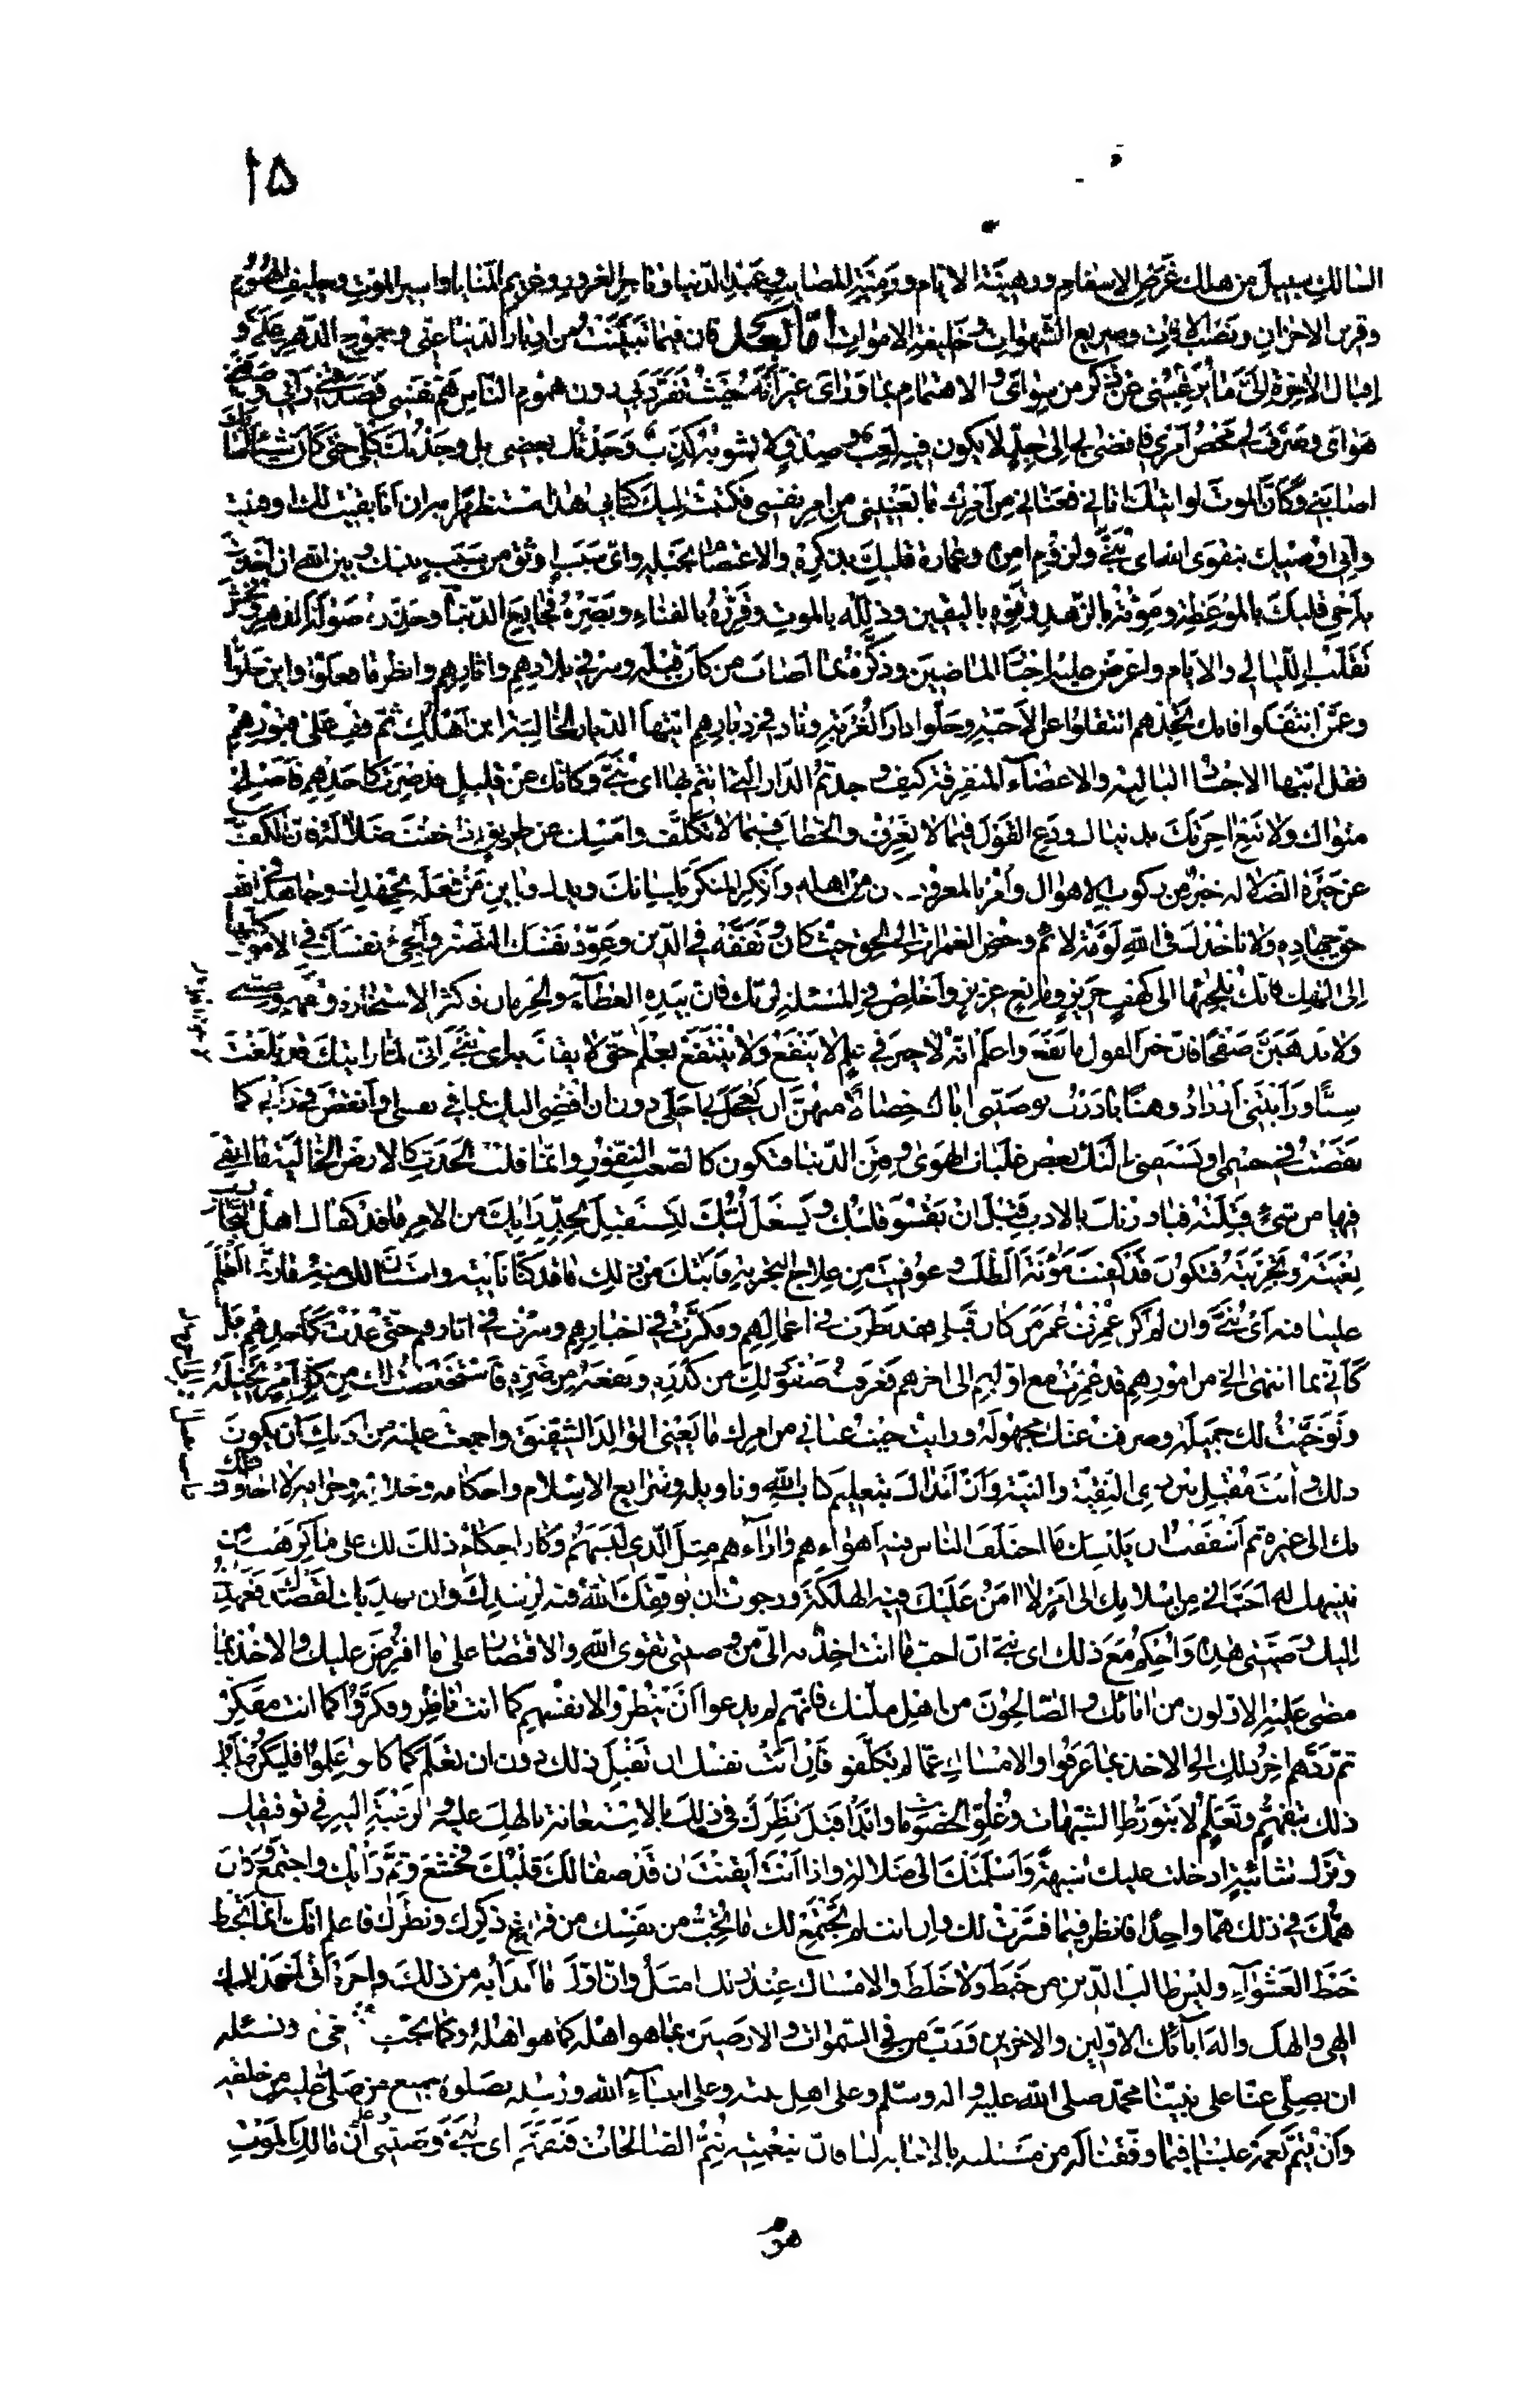 ١٥
السالك سبيل من هلك غرض الاسقام ورهينة الايام ورمية المصايب وعبد الدنيا وتاجر الغرور وغريم المنايا واسير الموت وحليف الهموم
وقرين الاحزان ونصب الافات وصريع الشهوات وخليفة الاموات أما بعد فان فيما تبينت من ادبار الدنيا عني وجموح الدهر علي و
اقبال الاخرة الي ما يرغبني عن ذكر من سواي والاهتمام بما وراي غير انه حيث تفرد بي دون هموم الناس هم نفسي فصدفني رأيي وصرفني
هواي وصرح لي محض امري فافضى بي الى جد لا يكون فيه لعب وصدق لا يشوبه كذب وجدتك بعضي بل وجدتك كلي حتى كان شيئا لو اصابك
اصابني وكان الموت لو اتاك اتاني فعناني من امرك ما يعنيني من امر نفسي فكتبت اليك كتابي هذا مستظهرا به ان انا بقيت لك او فنيت
واني اوصيك بتقوى الله اي بني ولزوم امره وعمارة قلبك بذكره والاعتصام بحبله واي سبب اوثق من سبب بينك وبين الله ان اخذت
به احي قلبك بالموعظة وموته بالزهد وقوه باليقين وذلله بالموت وقرره بالفناء وبصره فجايع الدنيا وحذره صولة الدهر وفحش
تقلب الليالي والايام واعرض عليه اخبار الماضين وذكره بما اصاب من كان قبله وسر في بلادهم واثارهم وانظر ما فعلوا واين حلوا
وعمن انتقلوا فانك تجدهم انتقلوا عن الاحبة وحلوا دار الغربة وناد في ديارهم ايتها الديار الخالية اين اهلك ثم قف على قبورهم
فقل ايتها الاجساد البالية والاعضاء المتفرقة كيف وجدتم الدار التي انتم بها اي بني وكانك عن قليل قد صرت كاحدهم فاصلح
مثواك ولا تبع اخرتك بدنياك ودع القول فيما لا تعرف والخطاب فيما لا تكلف وامسك عن طريق اذا خفت ضلالته فان الكف
عن حيرة الضلالة خير من ركوب الاهوال وأمر بالمعروف تكن من اهله وأنكر المنكر بلسانك ويدك وباين من فعله بجهدك وجاهد في الله
حق جهاده ولا تاخذك في الله لومة لائم وخض الغمرات الى الحق حيث كان وتفقه في الدين وعود نفسك التصبر وألجئ نفسك في الامور كلها
الى الهك فانك تلجئها الى كهف حريز ومانع عزيز وأخلص في المسئلة لربك فان بيده العطاء والحرمان واكثر الاستخارة وتفهم وصيتي
ولا تذهبن صفحا فان خير القول ما نفع واعلم انه لا خير في علم لا ينفع ولا ينتفع بعلم حتى لا يقال به اي بني اني لما رايتك قد بلغت
سنا ورأيتني ازداد وهنا بادرت بوصيتي اياك خصالا منهن ان يعجل بي اجلي دون ان افضي اليك بما في نفسي او أنقص في رأيي كما
نقصت في جسمي او يسبقني اليك بعض غلبات الهوى وفتن الدنيا فتكون كالصعب النفور وانما قلب الحدث كالارض الخالية ما القي
فيها من شيء قبلته فبادرتك بالادب قبل ان يقسو قلبك ويشغل لبك لتستقبل بجد رأيك من الامر ما قد كفاك اهل التجارب
بغيته وتجربته فتكون قد كفيت مؤنة الطلب وعوفيت من علاج التجربة فاتاك من ذلك ما قد كنا ناتيه واستبان لك منه ما ربما اظلم
علينا فيه اي بني وان لم اكن عمرت عمر من كان قبلي فقد نظرت في اعمالهم وفكرت في اخبارهم وسرت في اثارهم حتى عدت كاحدهم بل
كأني بما انتهى الي من امورهم قد عمرت مع اولهم الى اخرهم فعرفت صفو ذلك من كدره ونفعه من ضرره فاستخلصت لك من كل امر نخيله
وتوخيت لك جميله وصرفت عنك مجهوله ورايت حيث عناني من امرك ما يعني الوالد الشفيق واجمعت عليه من ادبك ان يكون
ذلك وأنت مقبل بين ذي النقية والنية وأن ابتدأك بتعليم كتاب الله وتاويله وشرايع الاسلام واحكامه وحلاله وحرامه لا اجاوز ذلك
بك الى غيره ثم أشفقت ان يلبسك ما اختلف الناس فيه اهواءهم واراءهم مثل الذي لبسهم وكان احكام ذلك لك على ما كرهت من
تنبيهك له احب الي من اسلامك الى امر لا امن عليك فيه الهلكة ورجوت ان يوفقك الله فيه لرشدك وان يهديك لقصدك فعهدت
اليك وصيتي هذه وأحكم مع ذلك اي بني ان احب ما انت اخذ به الي من وصيتي تقوى الله والاقتصار على ما افترض عليك والاخذ بما
مضى عليه الاولون من ابائك والصالحون من اهل ملتك فانهم لم يدعوا ان ينظروا لانفسهم كما انت ناظر وفكروا كما انت مفكر
ثم ردهم اخر ذلك الى الاخذ بما عرفوا والامساك عما لم يكلفوا فان ابت نفسك ان تقبل ذلك دون ان تعلم كما كانوا علموا فليكن طلبك
ذلك بتفهم وتعلم لا بتورط الشبهات وغلو الخصومات وابدأ قبل نظرك في ذلك بالاستعانة بالهك عليه والرغبة اليه في توفيقك
وترك شائبة ادخلت عليك شبهة وأسلمتك الى ضلالة واذا أنت أيقنت ان قد صفا لك قلبك فخشع وتم رأيك واجتمع وكان
همك في ذلك هما واحدا فانظر فيما فسرت لك وان انت لم يجتمع لك ما تحب من نفسك من فراغ فكرك ونظرك فاعلم انك انما تخبط
خبط العشواء وليس طالب الدين من خبط ولا خلط والامساك عند ذلك امثل وان اول ما ابدأك به من ذلك واخره اني احمد اليك
الهي والهك واله ابائك الاولين والاخرين ورب من في السموات والارضين بما هو اهله كما هو اهله وكما يحب وينبغي ونسئله
ان يصلي عنا على نبينا محمد صلى الله عليه واله وسلم وعلى اهل بيته وعلى انبياء الله ورسله بصلوة جميع من صلى عليه من خلقه
وأن يتم نعمه علينا فيما وفقنا له من مسئلته بالاجابة لنا فان بنعمته تتم الصالحات فتفهم اي بني وصيتي واعلم أن مالك الموت
هو